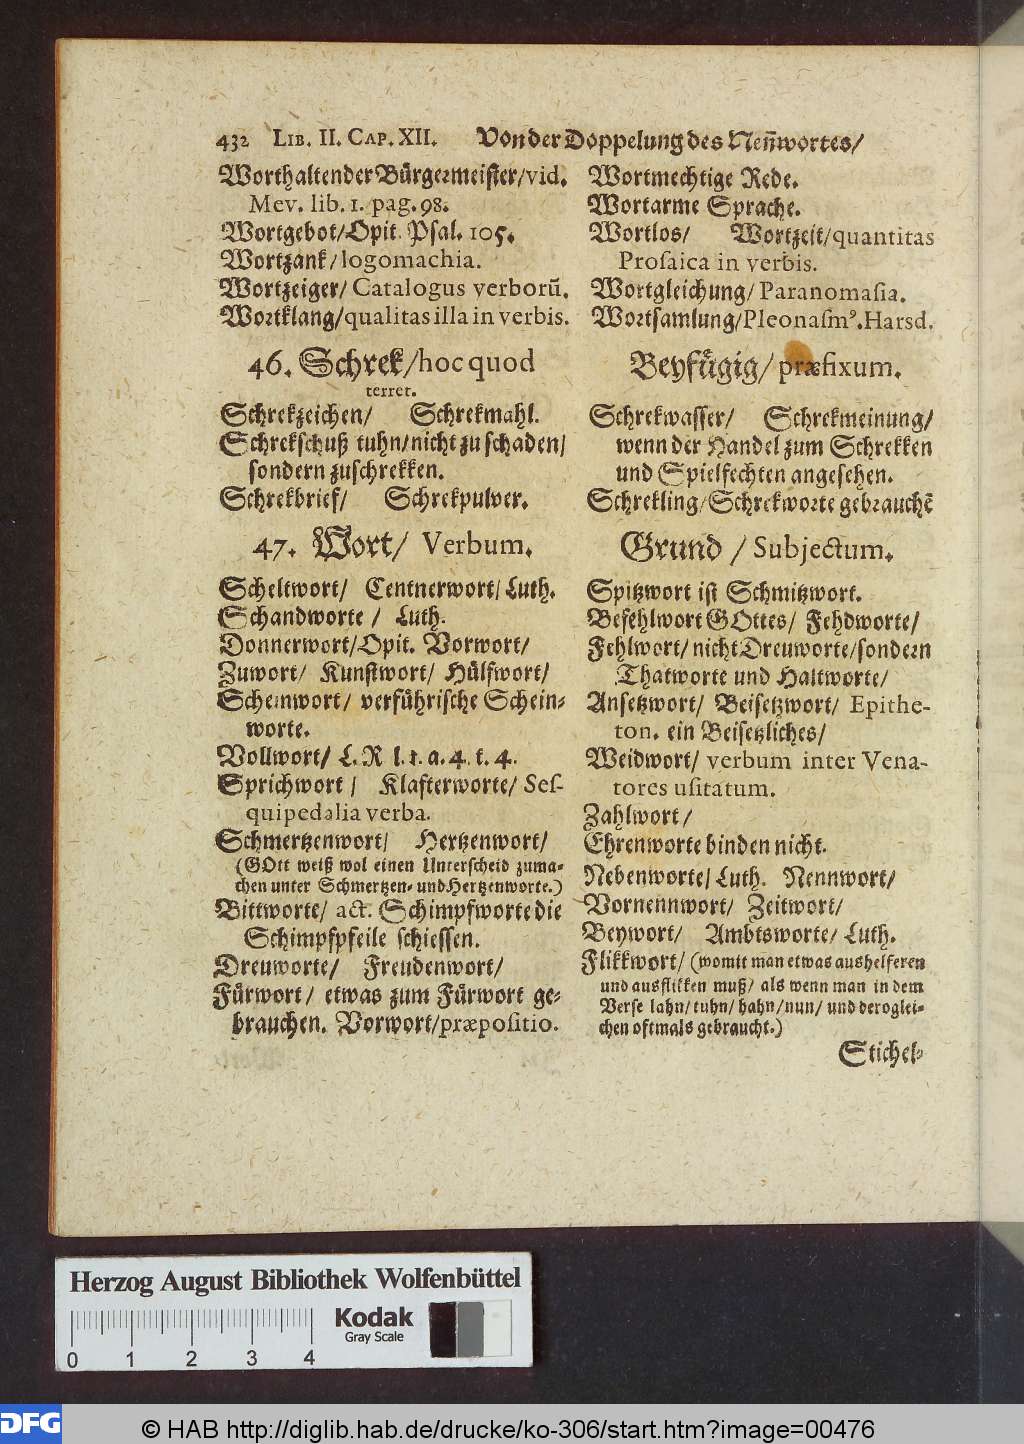 432 LIB. II. CAP. XII. Von der Doppelung des Nen̄wortes/
Worthaltender Bürgermeister/vid.
Mev. lib. 1. pag. 98.
Wortgebot/Opit. Psal. 105.
Wortzank/logomachia.
Wortzeiger/ Catalogus verborū.
Wortklang/qualitas illa in verbis.
46. Schrek/hoc quod
terret.
Schrekzeichen/ Schrekmahl.
Schrekschuß tuhn/nicht zu schaden/
sondern zuschrekken.
Schrekbrief/ Schrekpulver.
47. Wort/ Verbum.
Scheltwort/ Centnerwort/ Luth.
Schandworte / Luth.
Donnerwort/Opit. Vorwort/
Zuwort/ Kunstwort/ Hülfwort/
Scheinwort/ verführische Schein-
worte.
Vollwort/ L. R l. 1. a. 4. t. 4.
Sprichwort / Klafterworte/ Seſ-
quipedalia verba.
Schmertzenwort/ Hertzenwort/
(GOtt weiß wol einen Unterscheid zuma-
chen unter Schmertzen- und Hertzenworte.)
Bittworte/ act. Schimpfworte die
Schimpfpfeile schiessen.
Dreuworte/ Freudenwort/
Fürwort/ etwas zum Fürwort ge-
brauchen. Vorwort/præpositio.
Wortmechtige Rede.
Wortarme Sprache.
Wortlos/ Wortzeit/quantitas
Proſaica in verbis.
Wortgleichung/ Paranomaſia.
Wortsamlung/Pleonaſmꝰ.Harsd.
Beyfügig/ præfixum.
Schrekwasser/ Schrekmeinung/
wenn der Handel zum Schrekken
und Spielfechten angesehen.
Schrekling/Schrekworte gebrauchē
Grund / Subjectum.
Spitzwort ist Schmitzwort.
Befehlwort GOttes/ Fehdworte/
Fehlwort/ nicht Dreuworte/sondern
Thatworte und Haltworte/
Ansetzwort/ Beisetzwort/ Epithe-
ton. ein Beisetzliches/
Weidwort/ verbum inter Vena-
tores uſitatum.
Zahlwort/
Ehrenworte binden nicht.
Nebenworte/ Luth. Nennwort/
Vornennwort/ Zeitwort/
Beywort/ Ambtsworte/ Luth.
Flikkwort/ (womit man etwas aushelferen
und ausflikken muß/ als wenn man in dem
Verse lahn/ tuhn/ hahn/ nun/ und deroglei-
chen oftmals gebraucht.)
Stichel-
Herzog August Bibliothek Wolfenbüttel
Kodak
Gray Scale
0 1 2 3 4
DFG © HAB http://diglib.hab.de/drucke/ko-306/start.htm?image=00476